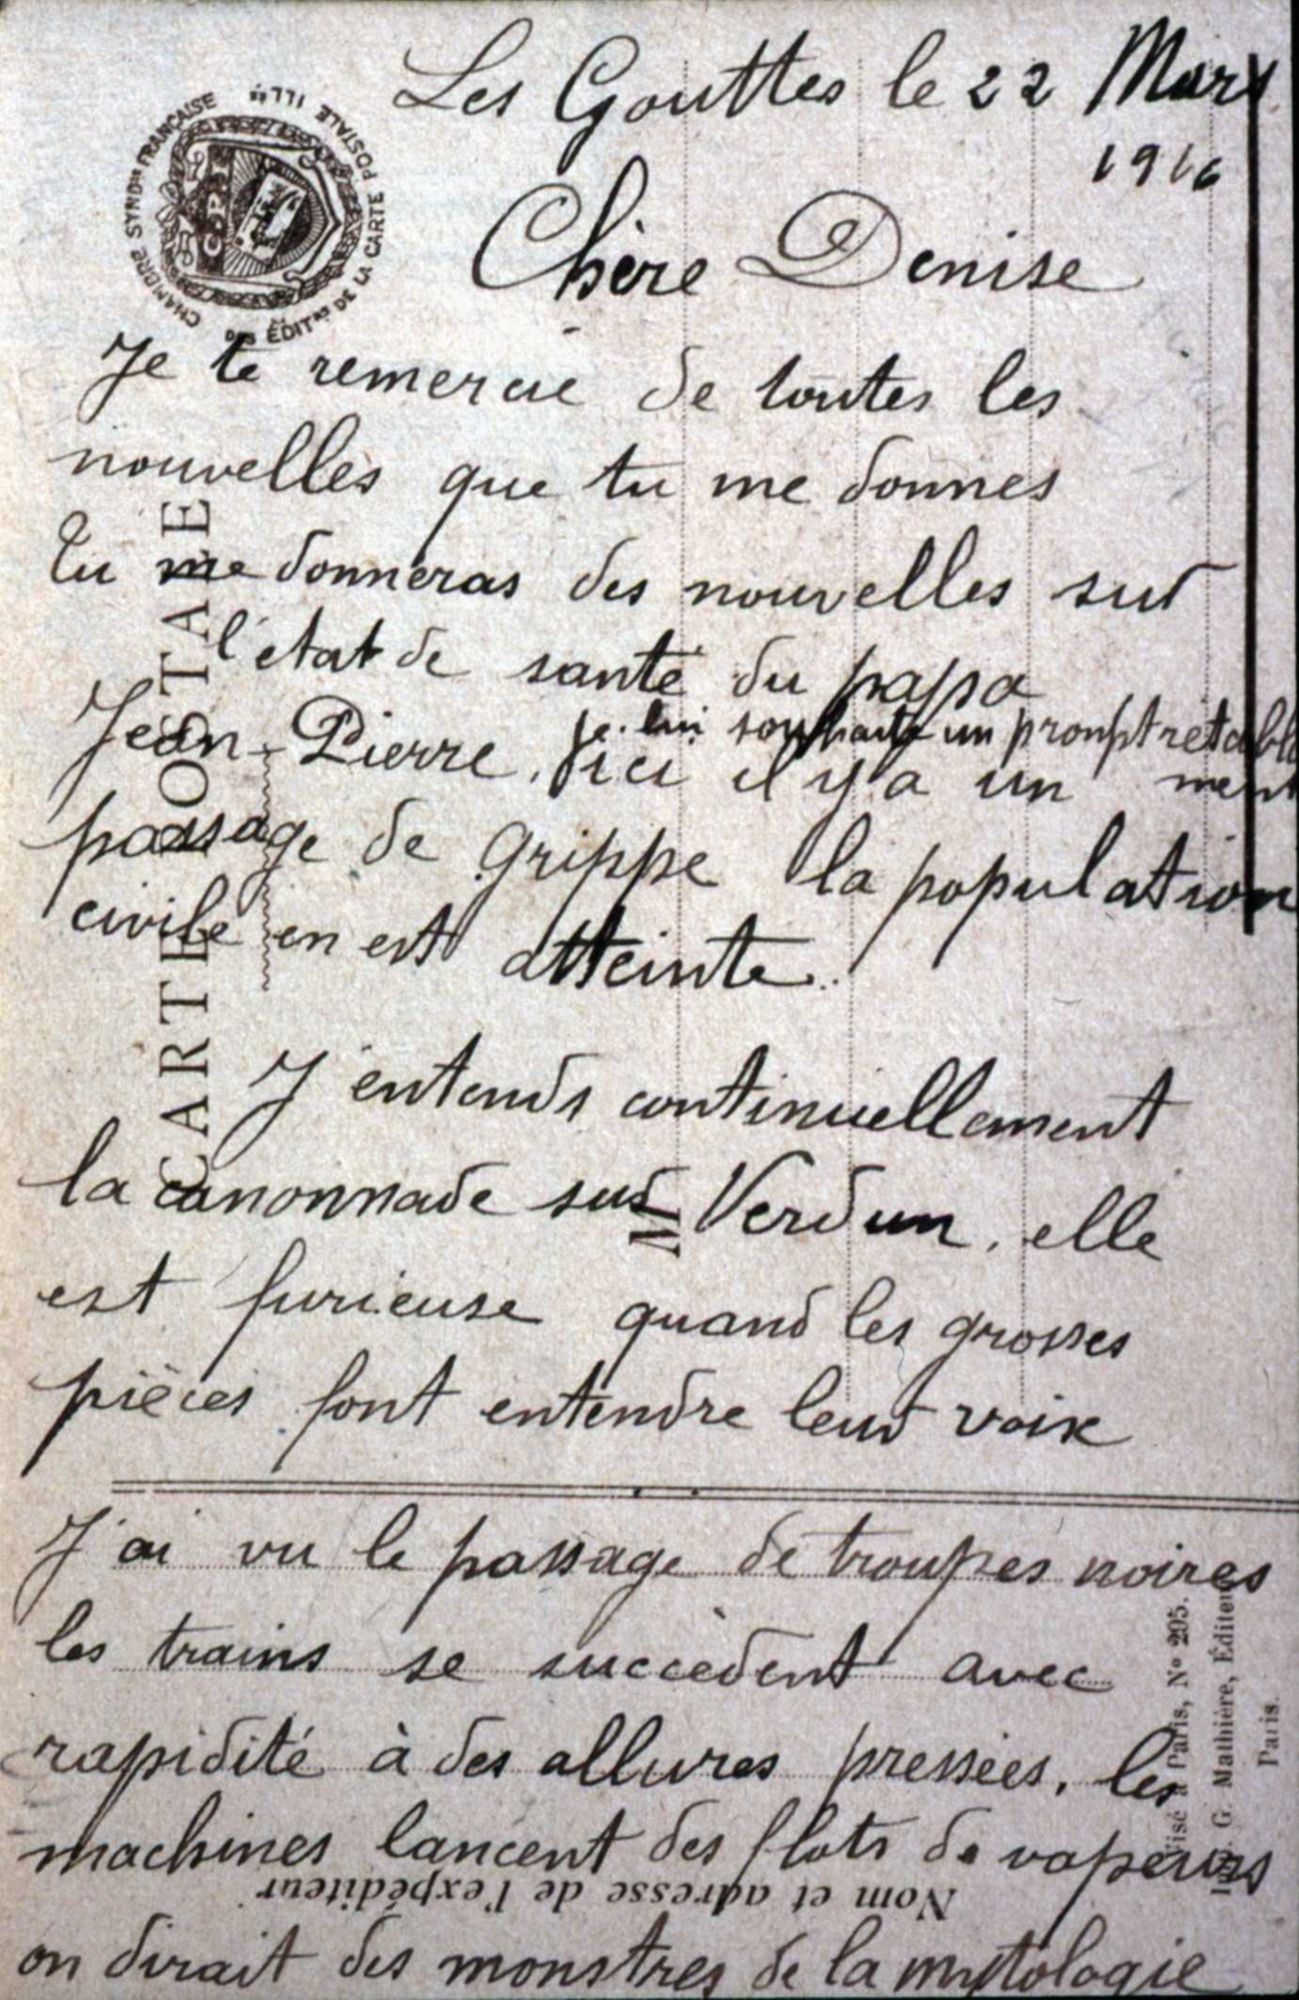 Les Gouttes le 22 Mars
1916
CHAMBRE SYND FRANÇAISE
DES ÉDIT DE LA CARTE POSTALE ILL
COPIE
Chère Denise
Je te remercie de toutes les
nouvelles que tu me donnes
Tu me donneras des nouvelles sur
l'état de santé du papa
Jean-Pierre, je lui souhaite un prompt rétablissement
ici il y a un
passage de grippe la population
civile en est atteinte.
CARTE POSTALE
J'entends continuellement
la canonnade sur Verdun, elle
M
est furieuse quand les grosses
pièces font entendre leur voix
J'ai vu le passage de troupes noires
les trains se succèdent avec
rapidité à des allures pressées, les
machines lancent des flots de vapeurs
on dirait des monstres de la mytologie
Nom et adresse de l'expéditeur
Visé à Paris, N° 295.
G. Mathière, Éditeur
Paris.